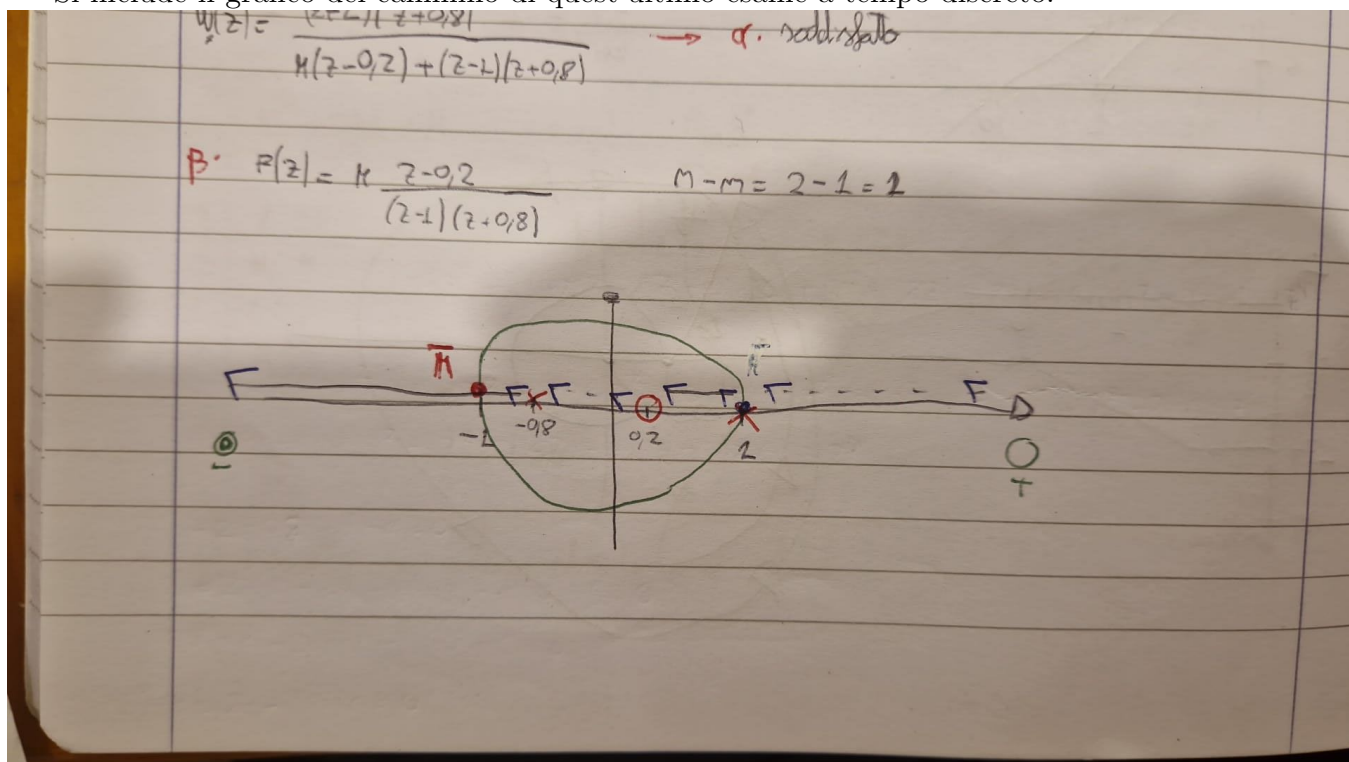 Si include il grafico del cammino di quest'ultimo esame a tempo discreto:
(z-1)(z+0,8)
W(z) = K(z-0,2)+(z-1)(z+0,8) → α. soddisfatto
β. F(z) = K z-0,2 n-m = 2-1 = 1
(z-1)(z+0,8)
K̄ K̄
-1 -0,8 0,2 1
- +